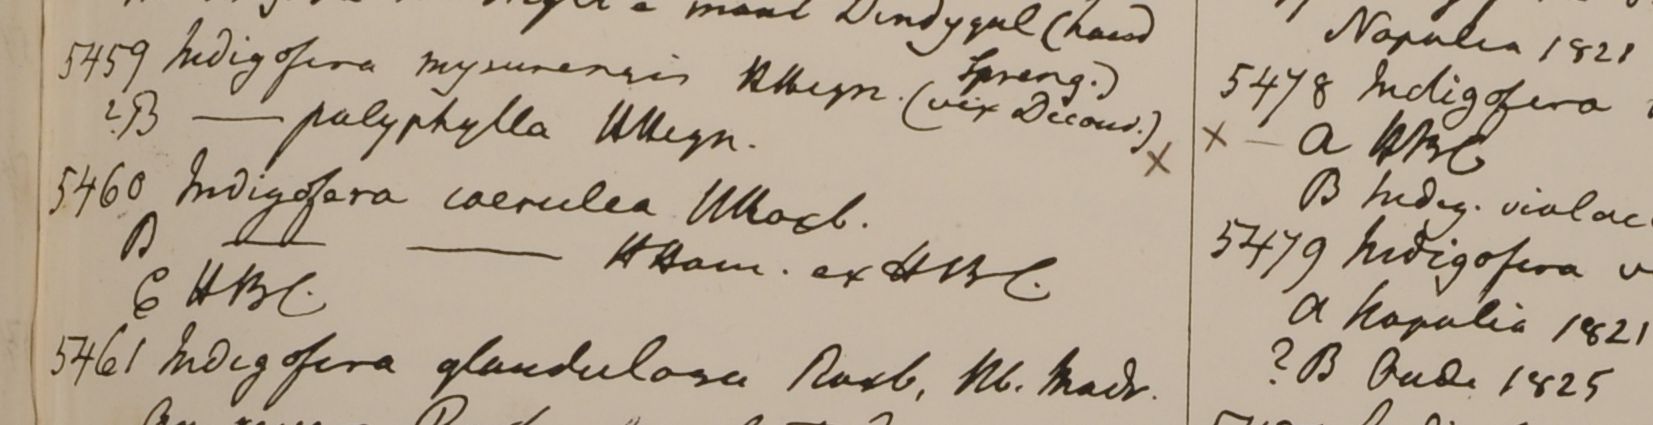 mont Dindygul (hand
5459 Indigofera mysurensis HHeyn. (Spreng.)
(vix Decand.)
?B — polyphylla HHeyn.
×
5460 Indigofera coerulea HRoxb.
B — — HHam. ex HBC.
C HBC.
5461 Indigofera glandulosa Roxb. Hb. Madr.
Napalia 1821
5478 Indigofera
× — a HBC
B Indig. violac
5479 Indigofera v
a Napalia 1821
?B Oude 1825